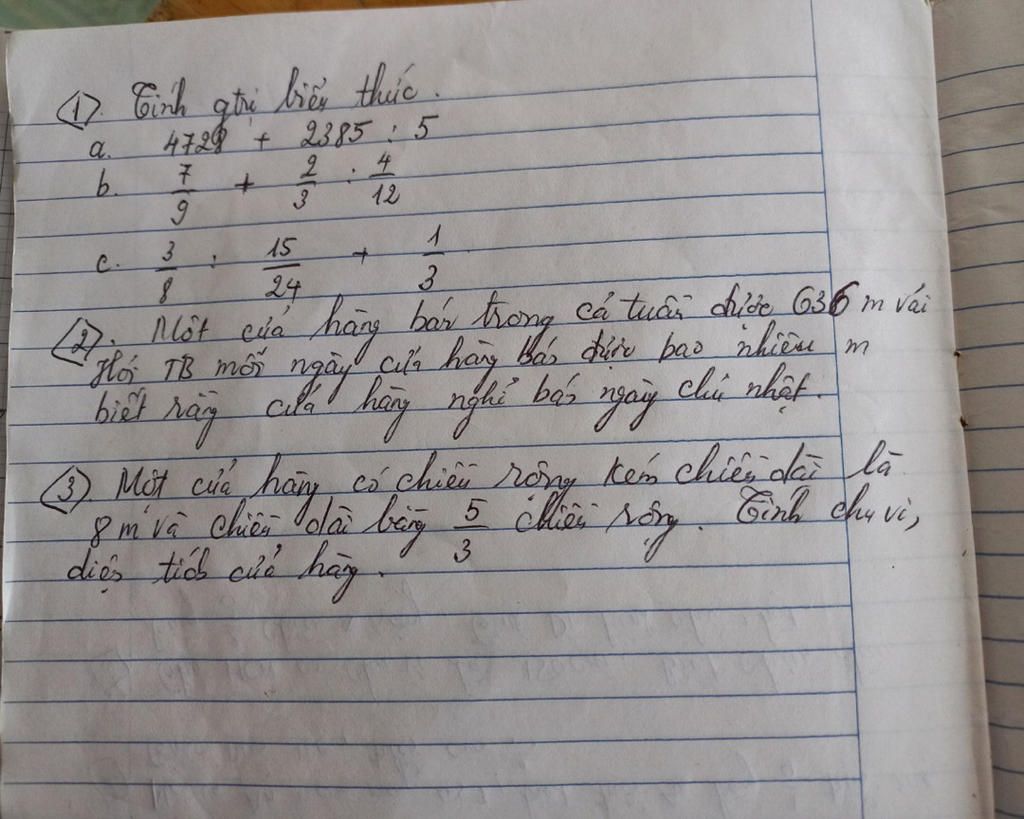 1. Tính gtrị biểu thức.
a. 4728 + 2385 : 5
b. 7/9 + 2/3 : 4/12
c. 3/8 : 15/24 + 1/3
2. Một cửa hàng bán trong cả tuần được 636 m vải
Hỏi TB mỗi ngày cửa hàng bán được bao nhiêu m
biết rằng cửa hàng nghỉ bán ngày chủ nhật.
3. Một cửa hàng có chiều rộng kém chiều dài là
8 m và chiều dài bằng 5/3 chiều rộng. Tính chu vi,
diện tích cửa hàng.